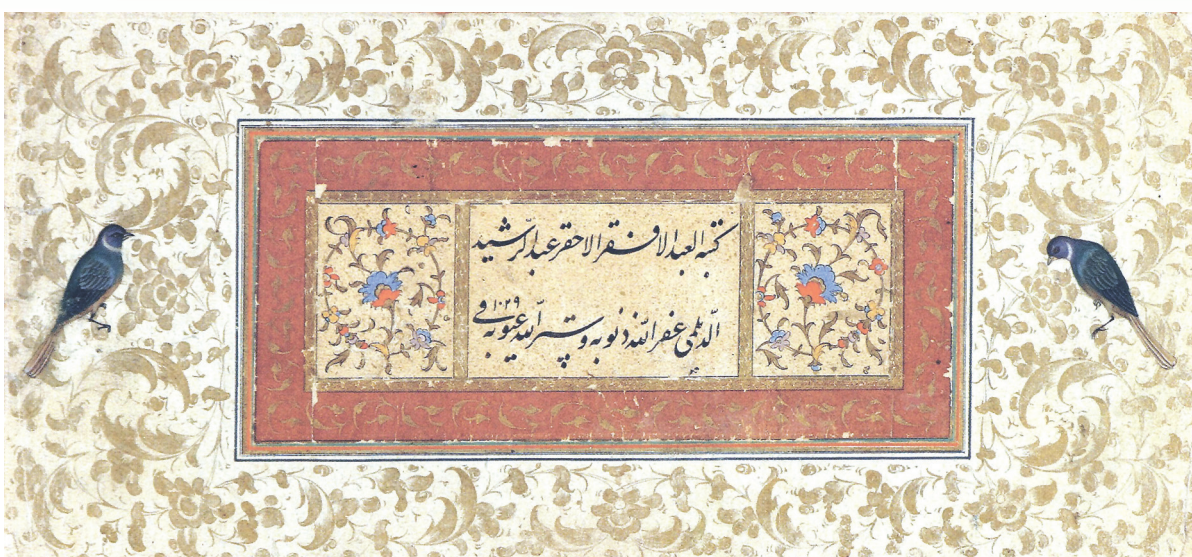 کتبه العبد الافقر الاحقر عبد الرشید
الدیلمی غفر الله ذنوبه و ستر الله عیوبه فی ۱۰۲۹